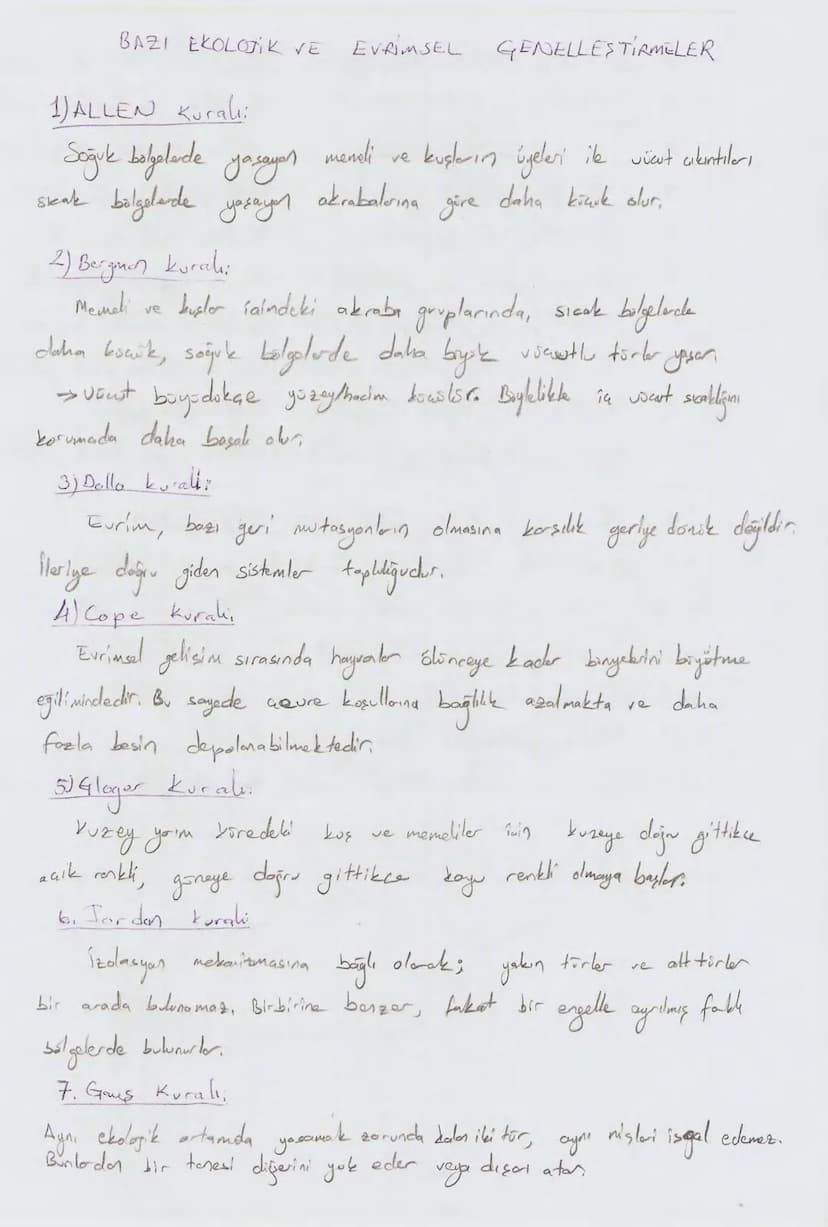 BAZI EKOLOJİK VE EVRİMSEL GENELLEŞTİRMELER
1) ALLEN Kuralı:
Soğuk bölgelerde yaşayan memeli ve kuşların üyeleri ile vücut çıkıntıları
sıcak bölgelerde yaşayan akrabalarına göre daha küçük olur.
2) Bergman Kuralı:
Memeli ve kuşlar içindeki akraba gruplarında, sıcak bölgelerde
daha küçük, soğuk bölgelerde daha büyük vücutlu türler yaşar.
→ Vücut büyüdükçe yüzey/hacim küçülür. Böylelikle iç vücut sıcaklığını
korumada daha başarılı olur.
3) Dollo kuralı:
Evrim, bazı geri mutasyonların olmasına karşılık geriye dönük değildir.
İleriye doğru giden sistemler topluluğudur.
4) Cope Kuralı.
Evrimsel gelişim sırasında hayvanlar ölünceye kadar bünyelerini büyütme
eğilimindedir. Bu sayede çevre koşullarına bağlılık azalmakta ve daha
fazla besin depolanabilmektedir.
5) Gloger Kuralı.
Kuzey yarım küredeki kuş ve memeliler için kuzeye doğru gittikçe
açık renkli, güneye doğru gittikçe koyu renkli olmaya başlar.
6. Jordan kuralı
İzolasyon mekanizmasına bağlı olarak; yakın türler ve alt türler
bir arada bulunamaz. Birbirine benzer, fakat bir engelle ayrılmış farklı
bölgelerde bulunurlar.
7. Gauş Kuralı.
Aynı ekolojik ortamda yaşamak zorunda kalan iki tür, aynı nişleri işgal edemez.
Bunlardan bir tanesi diğerini yok eder veya dışarı atar.